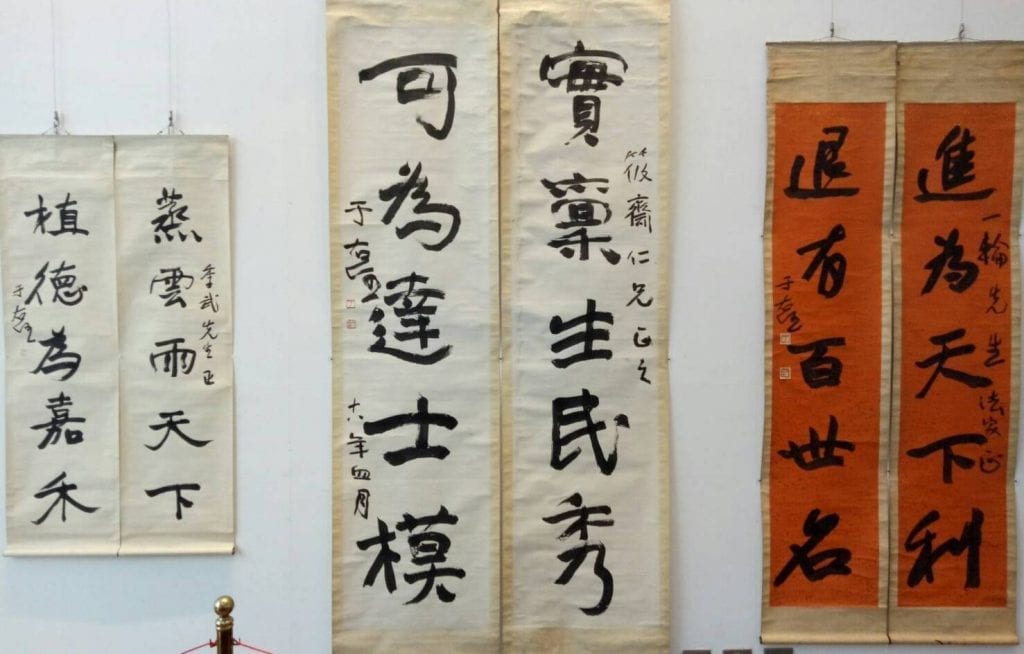 進為天下利
一輪先生法家正
退有百世名
于右任
實稟生民秀
筱齋仁兄正之
可為達士模
于右任
十八年四月
蒸雲雨天下
季武先生正
植德為嘉禾
于右任